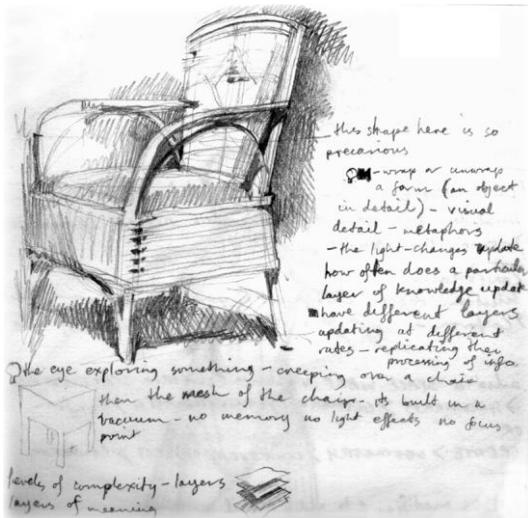 this shape here is so
precarious
- wrap or unwrap
a form (an object
in detail) - visual
detail - metaphors
- the light - changes update
how often does a particular
layer of knowledge update
have different layers
updating at different
rates - replicating the
processing of info
the eye exploring something - creeping over a chair
then the mesh of the chair - its built in a
vacuum - no memory no light effects no focus
point
levels of complexity - layers
layers of meaning